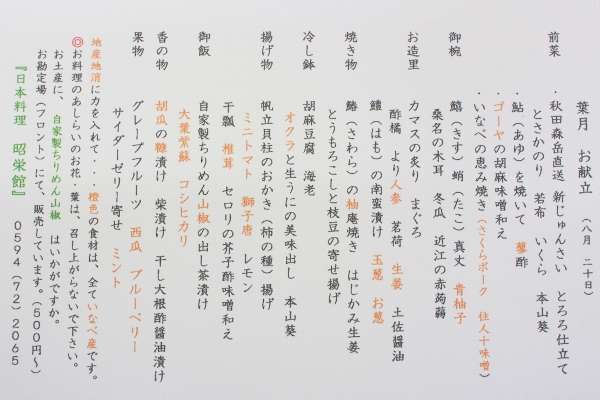 葉月　お献立　（八月　二十日）
前菜　・秋田森岳直送 新じゅんさい　とろろ仕立て
とさかのり　若布　いくら　本山葵
・鮎（あゆ）を焼いて　蓼酢
・ゴーヤの胡麻味噌和え
・いなべの恵み焼き（さくらポーク　住人十味噌）
御椀　鱚（きす）蛸（たこ）真丈　青柚子
桑名の木耳　冬瓜　近江の赤蒟蒻
お造里　カマスの炙り　まぐろ
酢橘　より人参　茗荷　生姜　土佐醤油
鱧（はも）の南蛮漬け　玉葱　お葱
焼き物　鰆（さわら）の柚庵焼き　はじかみ生姜
とうもろこしと枝豆の寄せ揚げ
冷し鉢　胡麻豆腐　海老
オクラと生うにの美味出し　本山葵
揚げ物　帆立貝柱のおかき（柿の種）揚げ
ミニトマト　獅子唐　レモン
干瓢　椎茸　セロリの芥子酢味噌和え
御飯　自家製ちりめん山椒の出し茶漬け
大葉紫蘇　コシヒカリ
香の物　胡瓜の糠漬け　柴漬け　干し大根酢醤油漬け
果物　グレープフルーツ　西瓜　ブルーベリー
サイダーゼリー寄せ　ミント
地産地消に力を入れて・・・橙色の食材は、全ていなべ産です。
◎お料理のあしらいのお花・葉は、召し上がらないで下さい。
お土産に、自家製ちりめん山椒　はいかがですか。
お勘定場（フロント）にて、販売しています。（５００円〜）
『日本料理　昭栄館』　０５９４（７２）２０６５